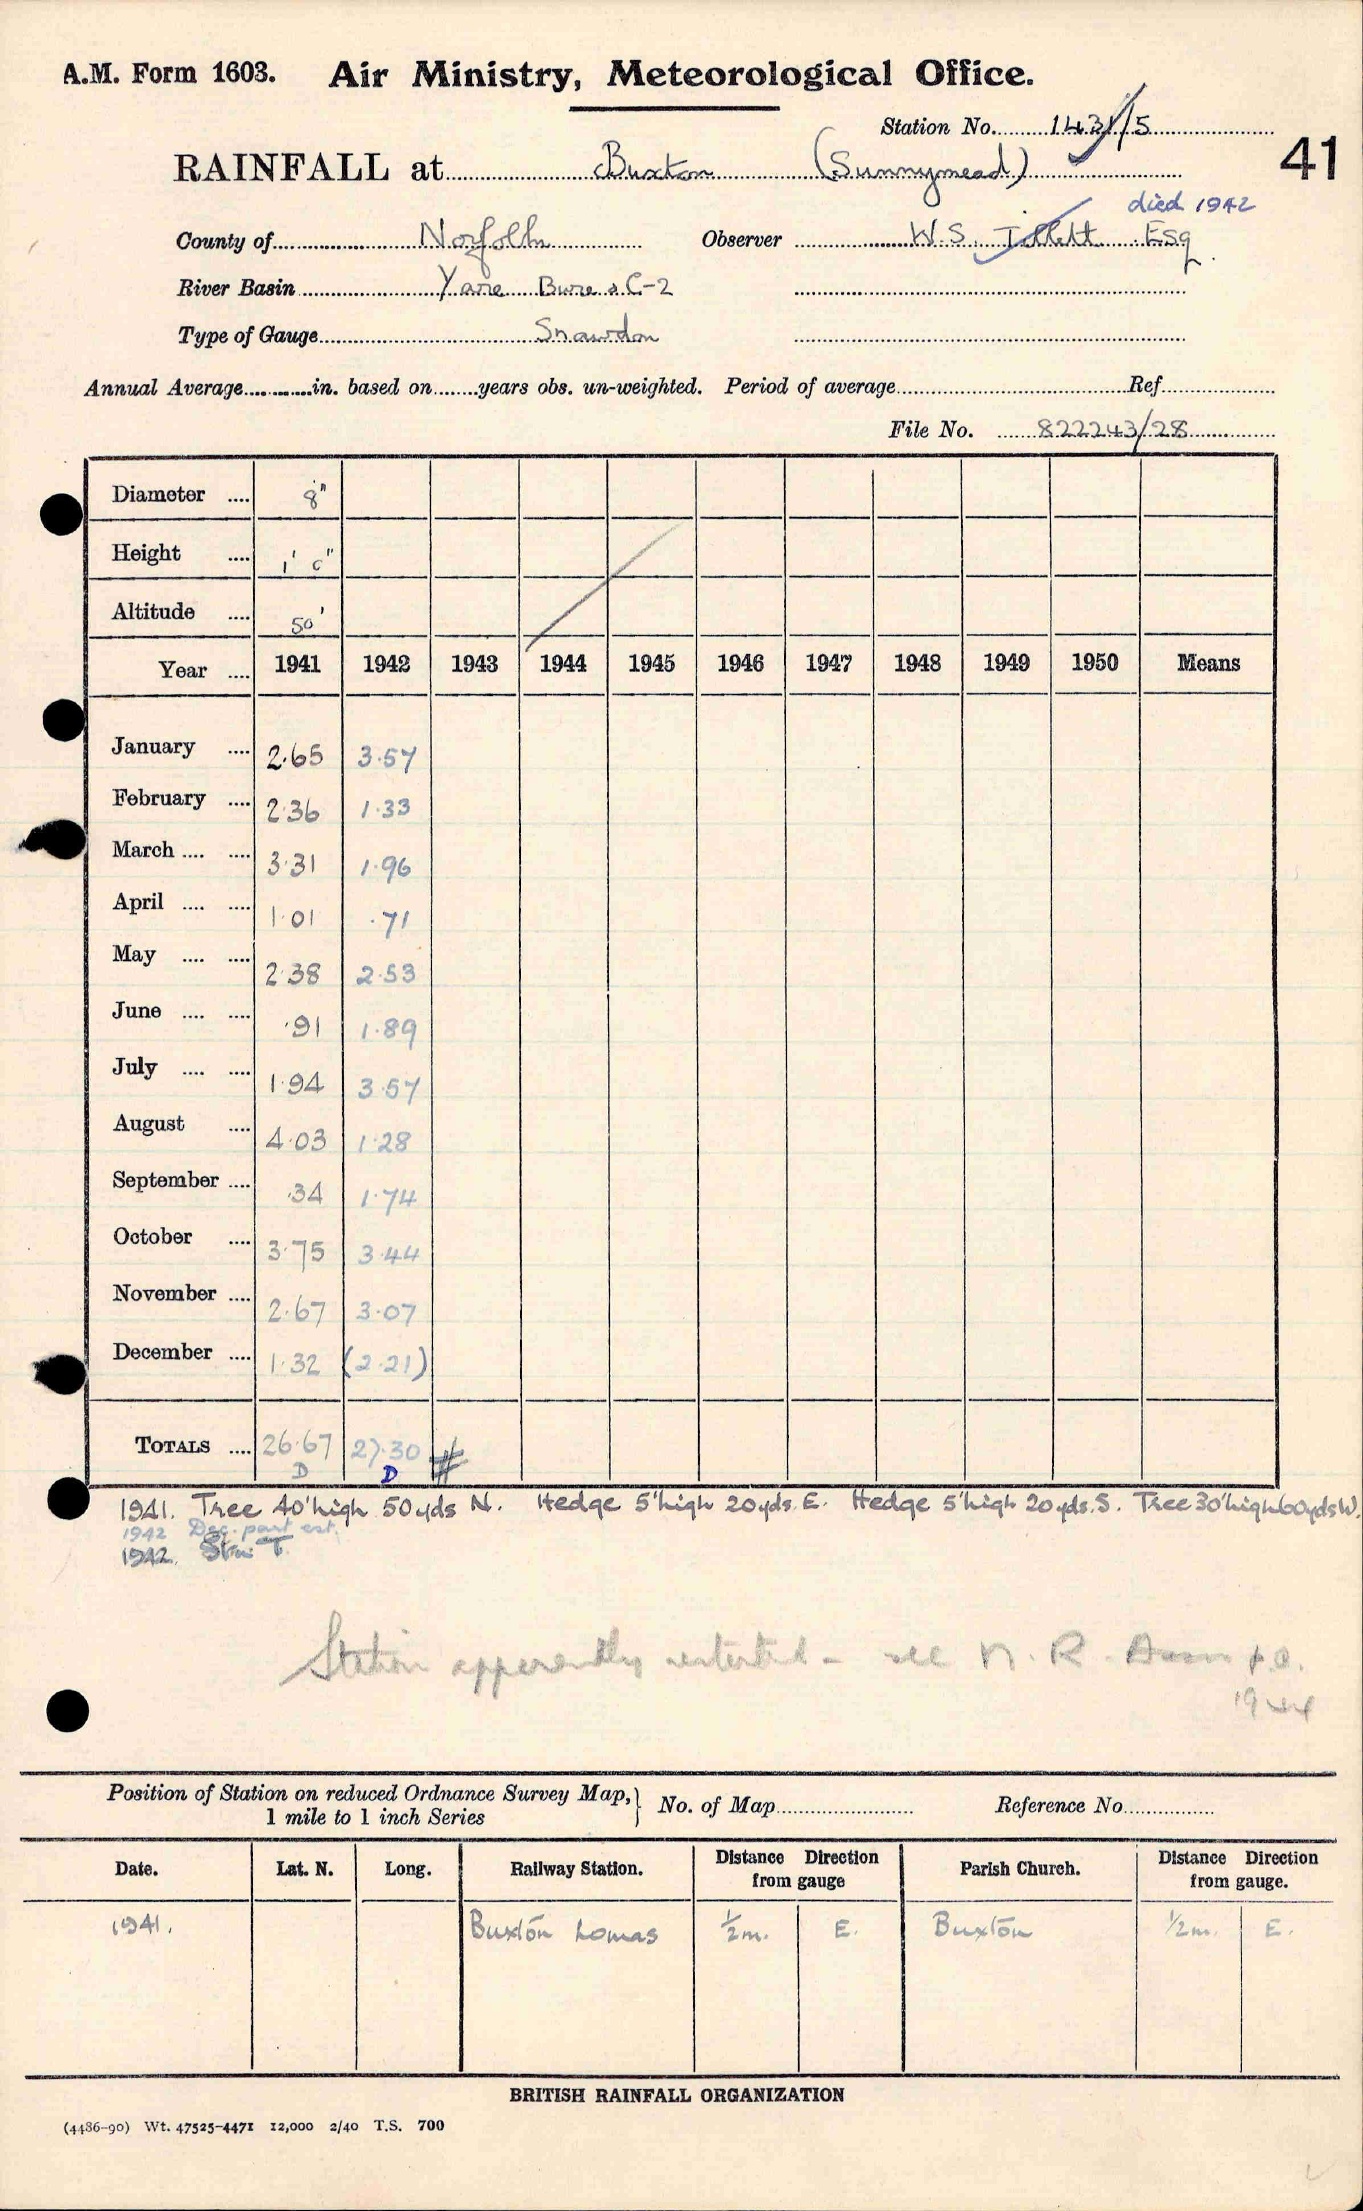 A.M. Form 1603. Air Ministry, Meteorological Office.
Station No. 1431/5
41
RAINFALL at Buxton (Sunnymead)
died 1942
County of Norfolk Observer W.S. Tillett Esq.
River Basin Yare Bure & C-2
Type of Gauge Snowdon
Annual Average in. based on years obs. un-weighted. Period of average Ref.
File No. 822243/28
Diameter 8"
Height 1' 0"
Altitude 50'
Year 1941 1942 1943 1944 1945 1946 1947 1948 1949 1950 Means
January 2.65 3.57
February 2.36 1.33
March 3.31 1.96
April 1.01 .71
May 2.38 2.53
June .91 1.89
July 1.94 3.57
August 4.03 1.28
September .34 1.74
October 3.75 3.44
November 2.67 3.07
December 1.32 (2.21)
TOTALS 26.67 27.30 #
D D
1941. Tree 40' high 50yds N. Hedge 5' high 20yds. E. Hedge 5' high 20yds. S. Tree 30' high 60yds W.
1942 Dec. part est.
1942.
Station apparently - see N. R.
1944
Position of Station on reduced Ordnance Survey Map, 1 mile to 1 inch Series } No. of Map Reference No.
Date. Lat. N. Long. Railway Station. Distance Direction from gauge Parish Church. Distance Direction from gauge.
1941. Buxton Lamas 1/2 m. E. Buxton 1/2 m. E.
BRITISH RAINFALL ORGANIZATION
(4486-90) Wt. 47525-4471 12,000 2/40 T.S. 700